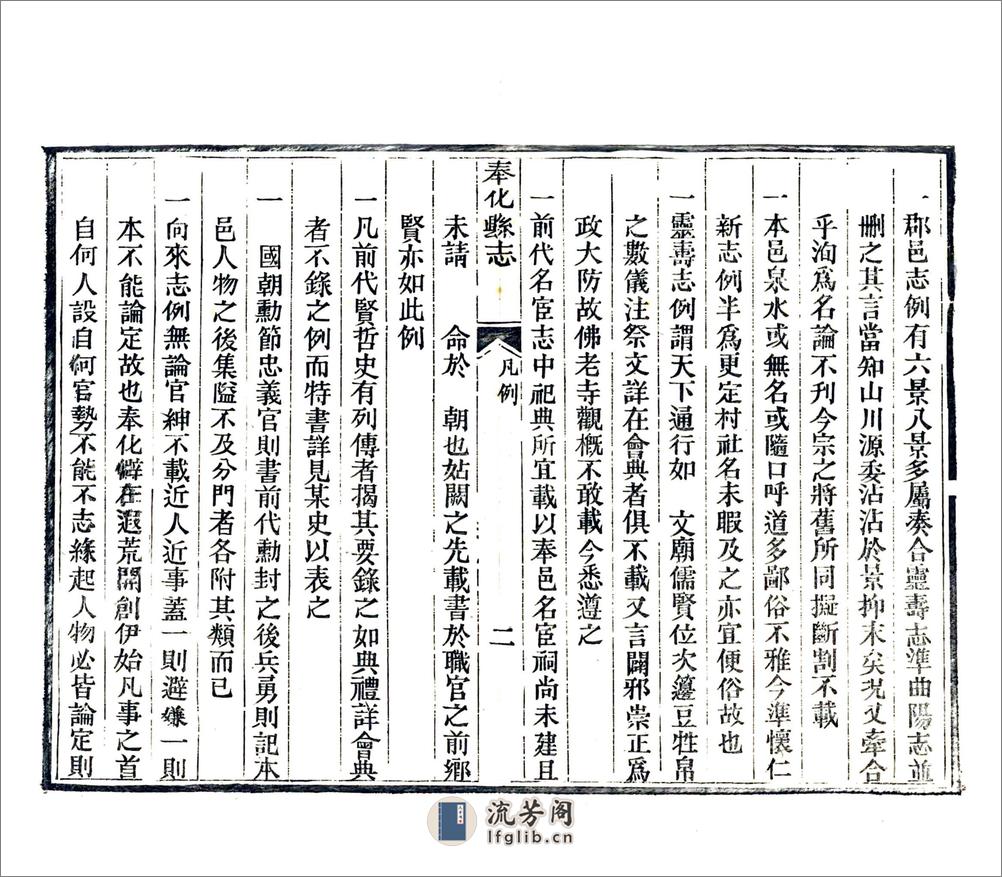 一郡邑志例有六景八景多屬湊合靈壽志準曲陽志並
刪之其言當知山川源委沾沾於景抑末矣況又牽合
乎洵爲名論不刊今宗之將舊所同擬斷割不載
一本邑泉水或無名或隨口呼道多鄙俗不雅今準懷仁
新志例半爲更定村社名未暇及之亦宜便俗故也
一靈壽志例謂天下通行如　文廟儒賢位次籩豆牲帛
之數儀注祭文詳在會典者俱不載又言闢邪崇正爲
政大防故佛老寺觀槪不敢載今悉遵之
一前代名宦志中祀典所宜載以奉邑名宦祠尚未建且
未請　命於　朝也姑闕之先載書於職官之前鄉
賢亦如此例
一凡前代賢哲史有列傳者揭其要錄之如典禮詳會典
者不錄之例而特書詳見某史以表之
一　國朝勳節忠義官則書前代勳封之後兵勇則記本
邑人物之後集隘不及分門者各附其類而已
一向來志例無論官紳不載近人近事蓋一則避嫌一則
本不能論定故也奉化僻在遐荒開創伊始凡事之首
自何人設自何官勢不能不志緣起人物必皆論定則
奉化縣志
凡例
二
流芳阁
lfglib.cn